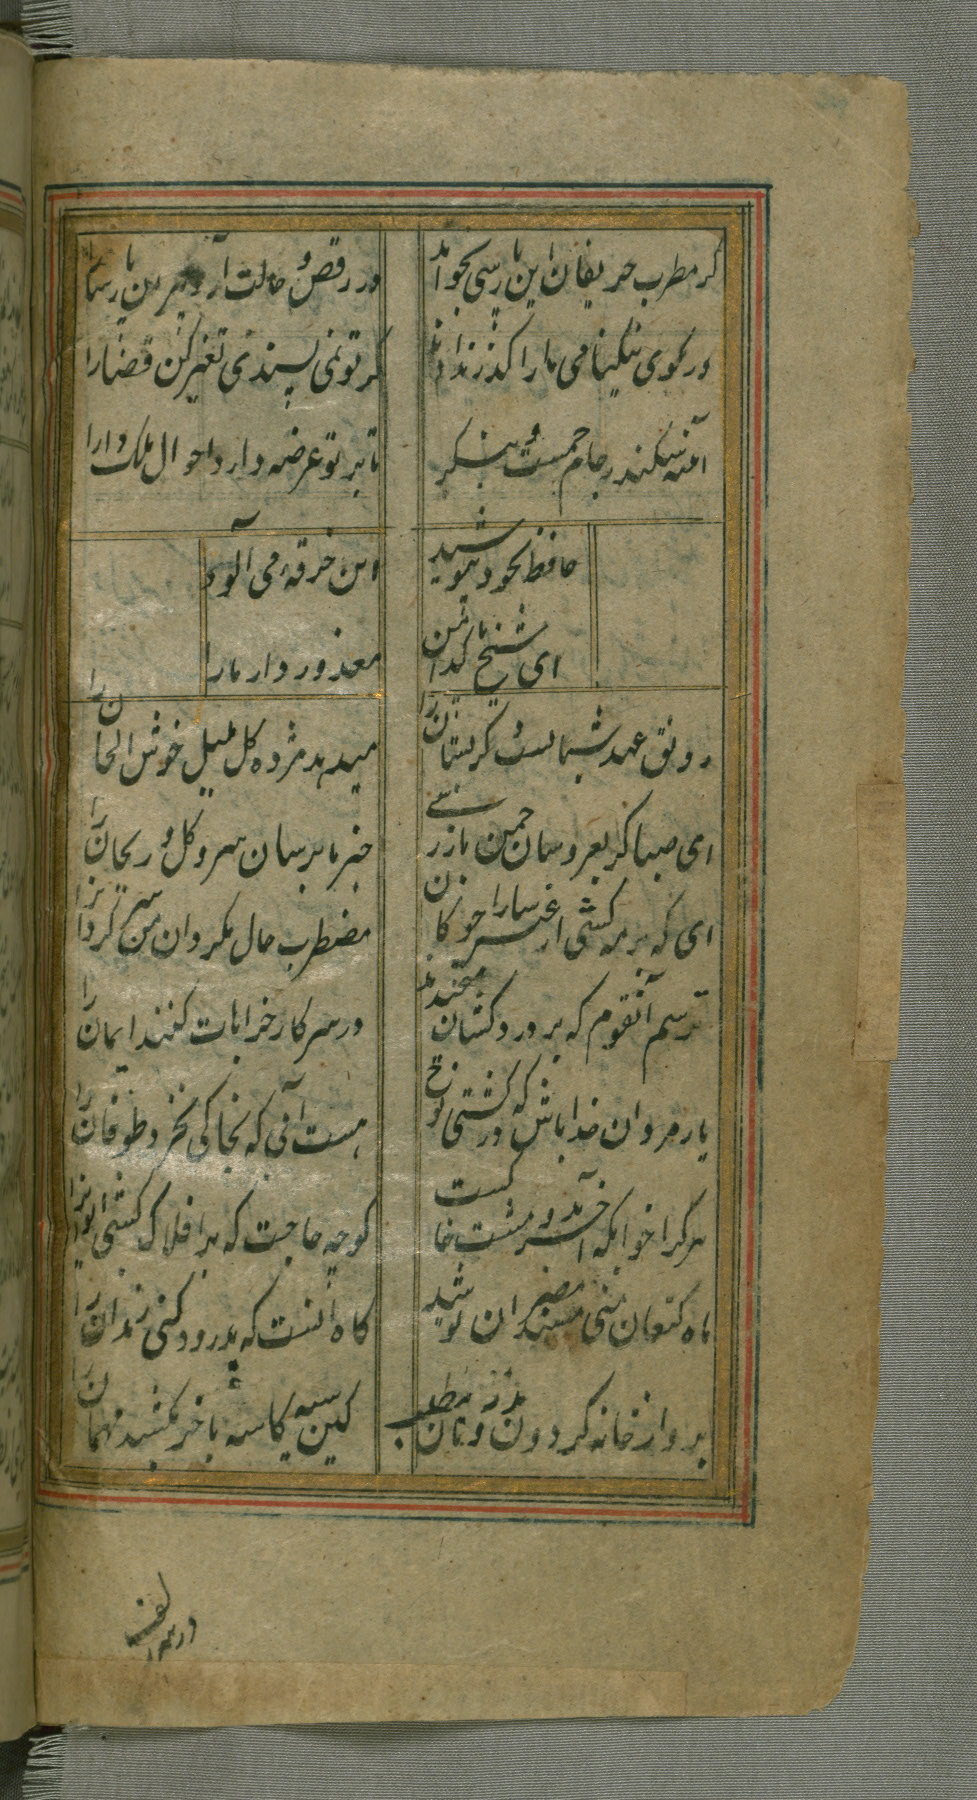 گر مطرب حریفان این پارسی بخواند
در رقص و حالت آرد پیران پارسا را
در کوی نیکنامی ما را گذر ندادند
گر تو نمی پسندی تغییر کن قضا را
آئنه سکندر جام جمست بنگر
تا بر تو عرضه دارد احوال ملک دارا
حافظ بخود نپوشید
این خرقه می آلود
ای شیخ پاکدامن
معذور دار ما را
رونق عهد شبابست دگر بستان را
میدهد مژده گل بلبل خوش الحان را
ای صبا گر بعروسان چمن باز رسی
خبر ما برسان سرو و گل و ریحان را
ای که بر مه کشی از عنبر سارا چوگان
مضطرب حال مگردان من سرگردانرا
ترسم آنقوم که بر دردکشان میخندند
در سر کار خرابات کنند ایمان را
یار مردان خدا باش که در کشتی نوح
هست آبی که بخاکی نخرد طوفان را
هر کرا خوابگه آخر نه دو مشت خاکست
گو چه حاجت که بر افلاک کشی ایوانرا
ماه کنعان منی مسند مصر آن تو شد
گاه آنست که بدرود کنی زندان را
برو از خانه گردون بدر و نان مطلب
کین سیه کاسه بآخر بکشد مهمان را
در سر زلف